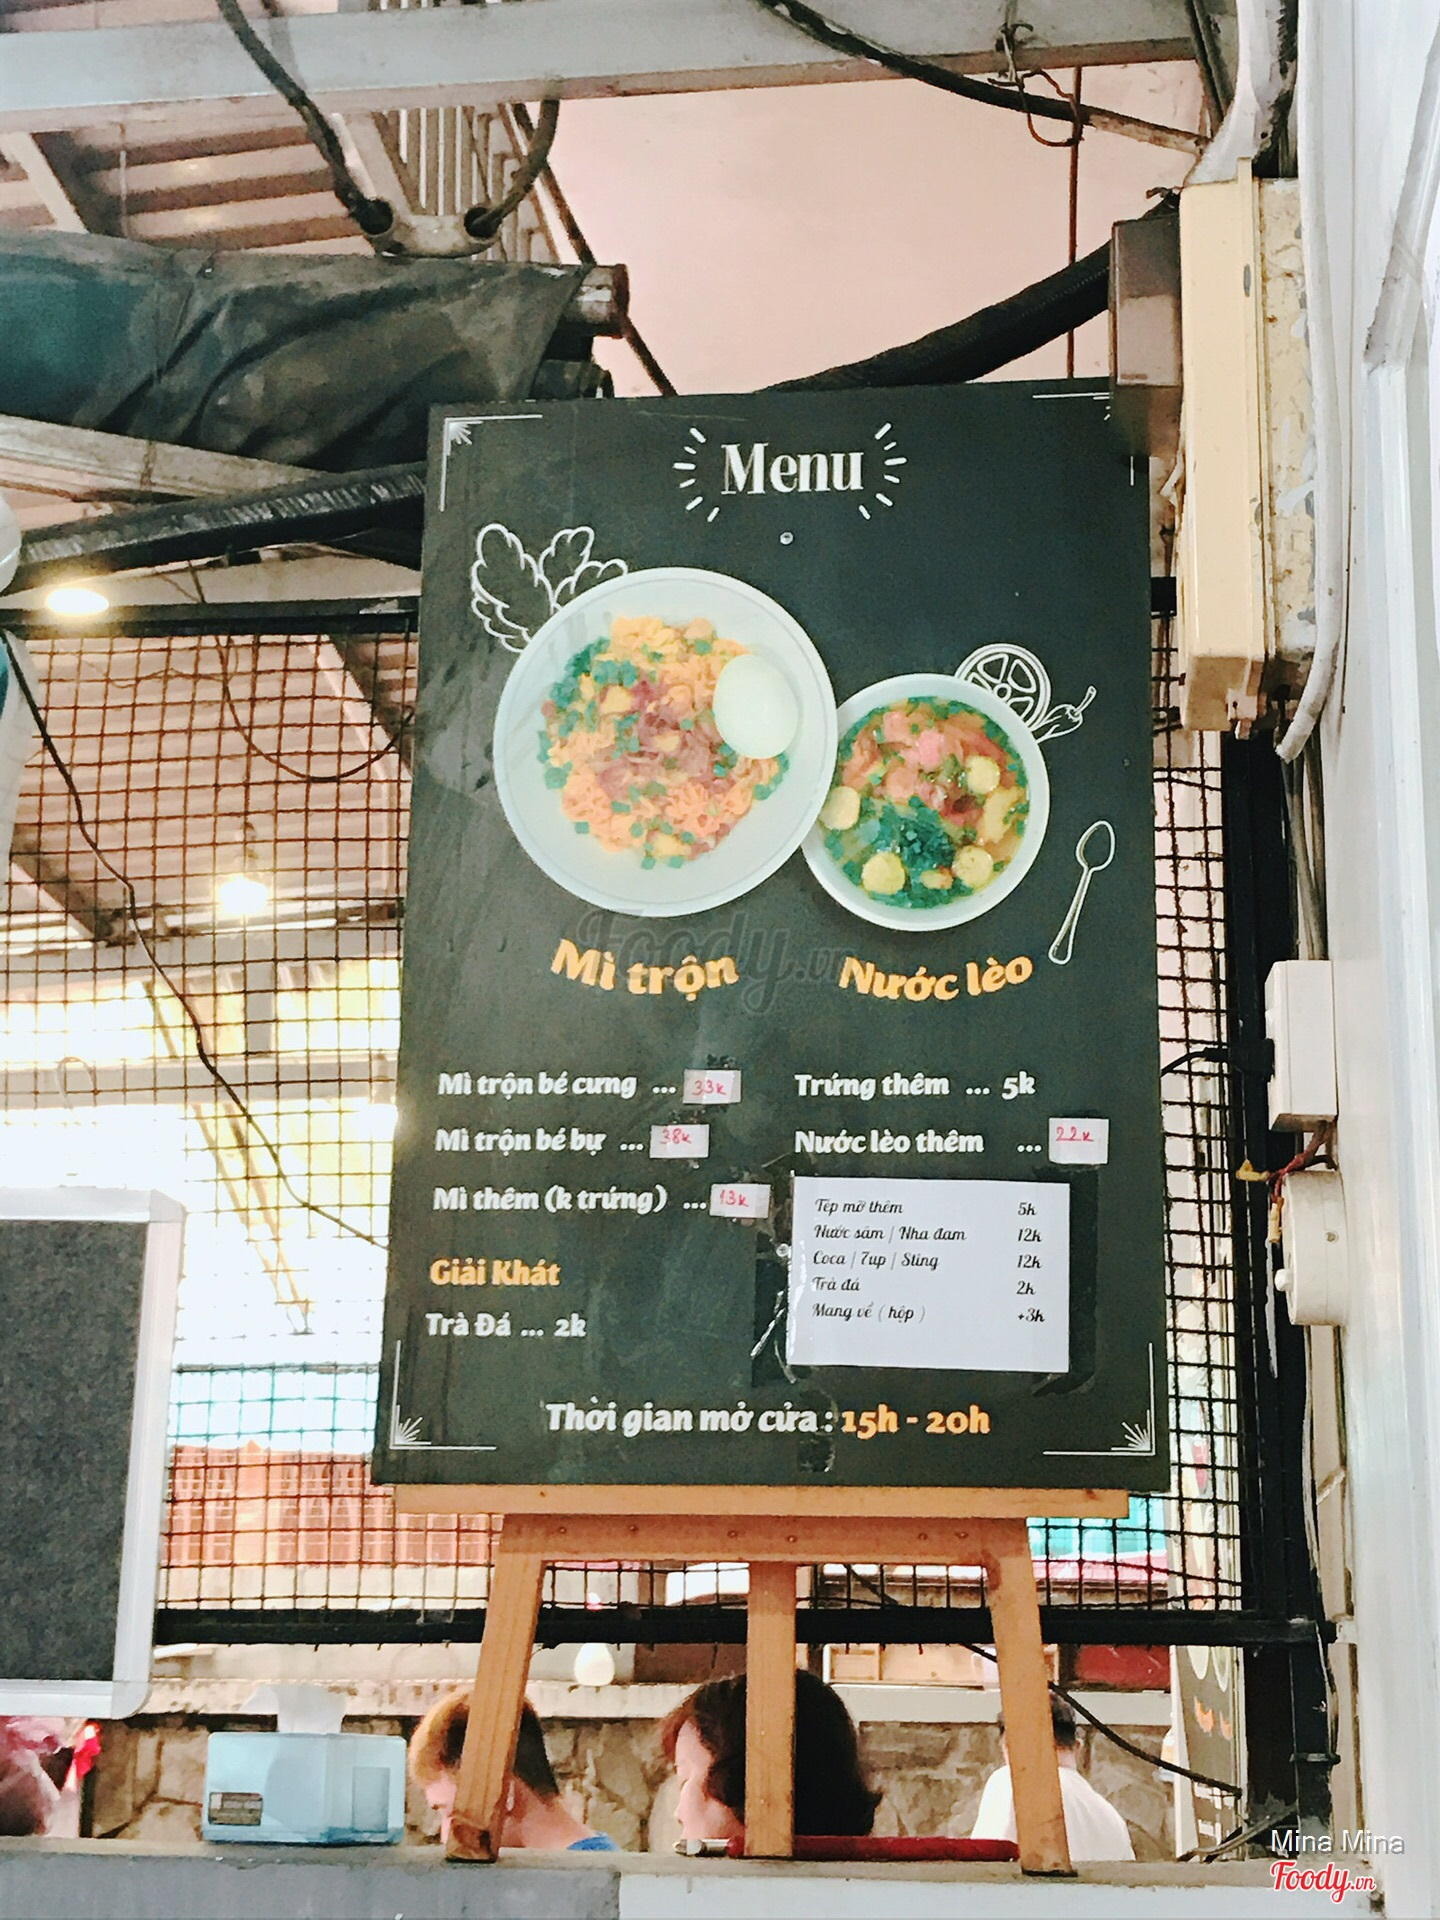 Menu
Foody.vn
Mì trộn
Nước lèo
Mì trộn bé cưng ... 33k
Mì trộn bé bự ... 38k
Mì thêm (k trứng) ... 13k
Giải Khát
Trà Đá ... 2k
Trứng thêm ... 5k
Nước lèo thêm ... 22k
Tép mỡ thêm 5k
Nước sâm | Nha đam 12k
Coca | 7up | Sting 12k
Trà đá 2k
Mang về ( hộp ) +3k
Thời gian mở cửa : 15h - 20h
Mina Mina
Foody.vn